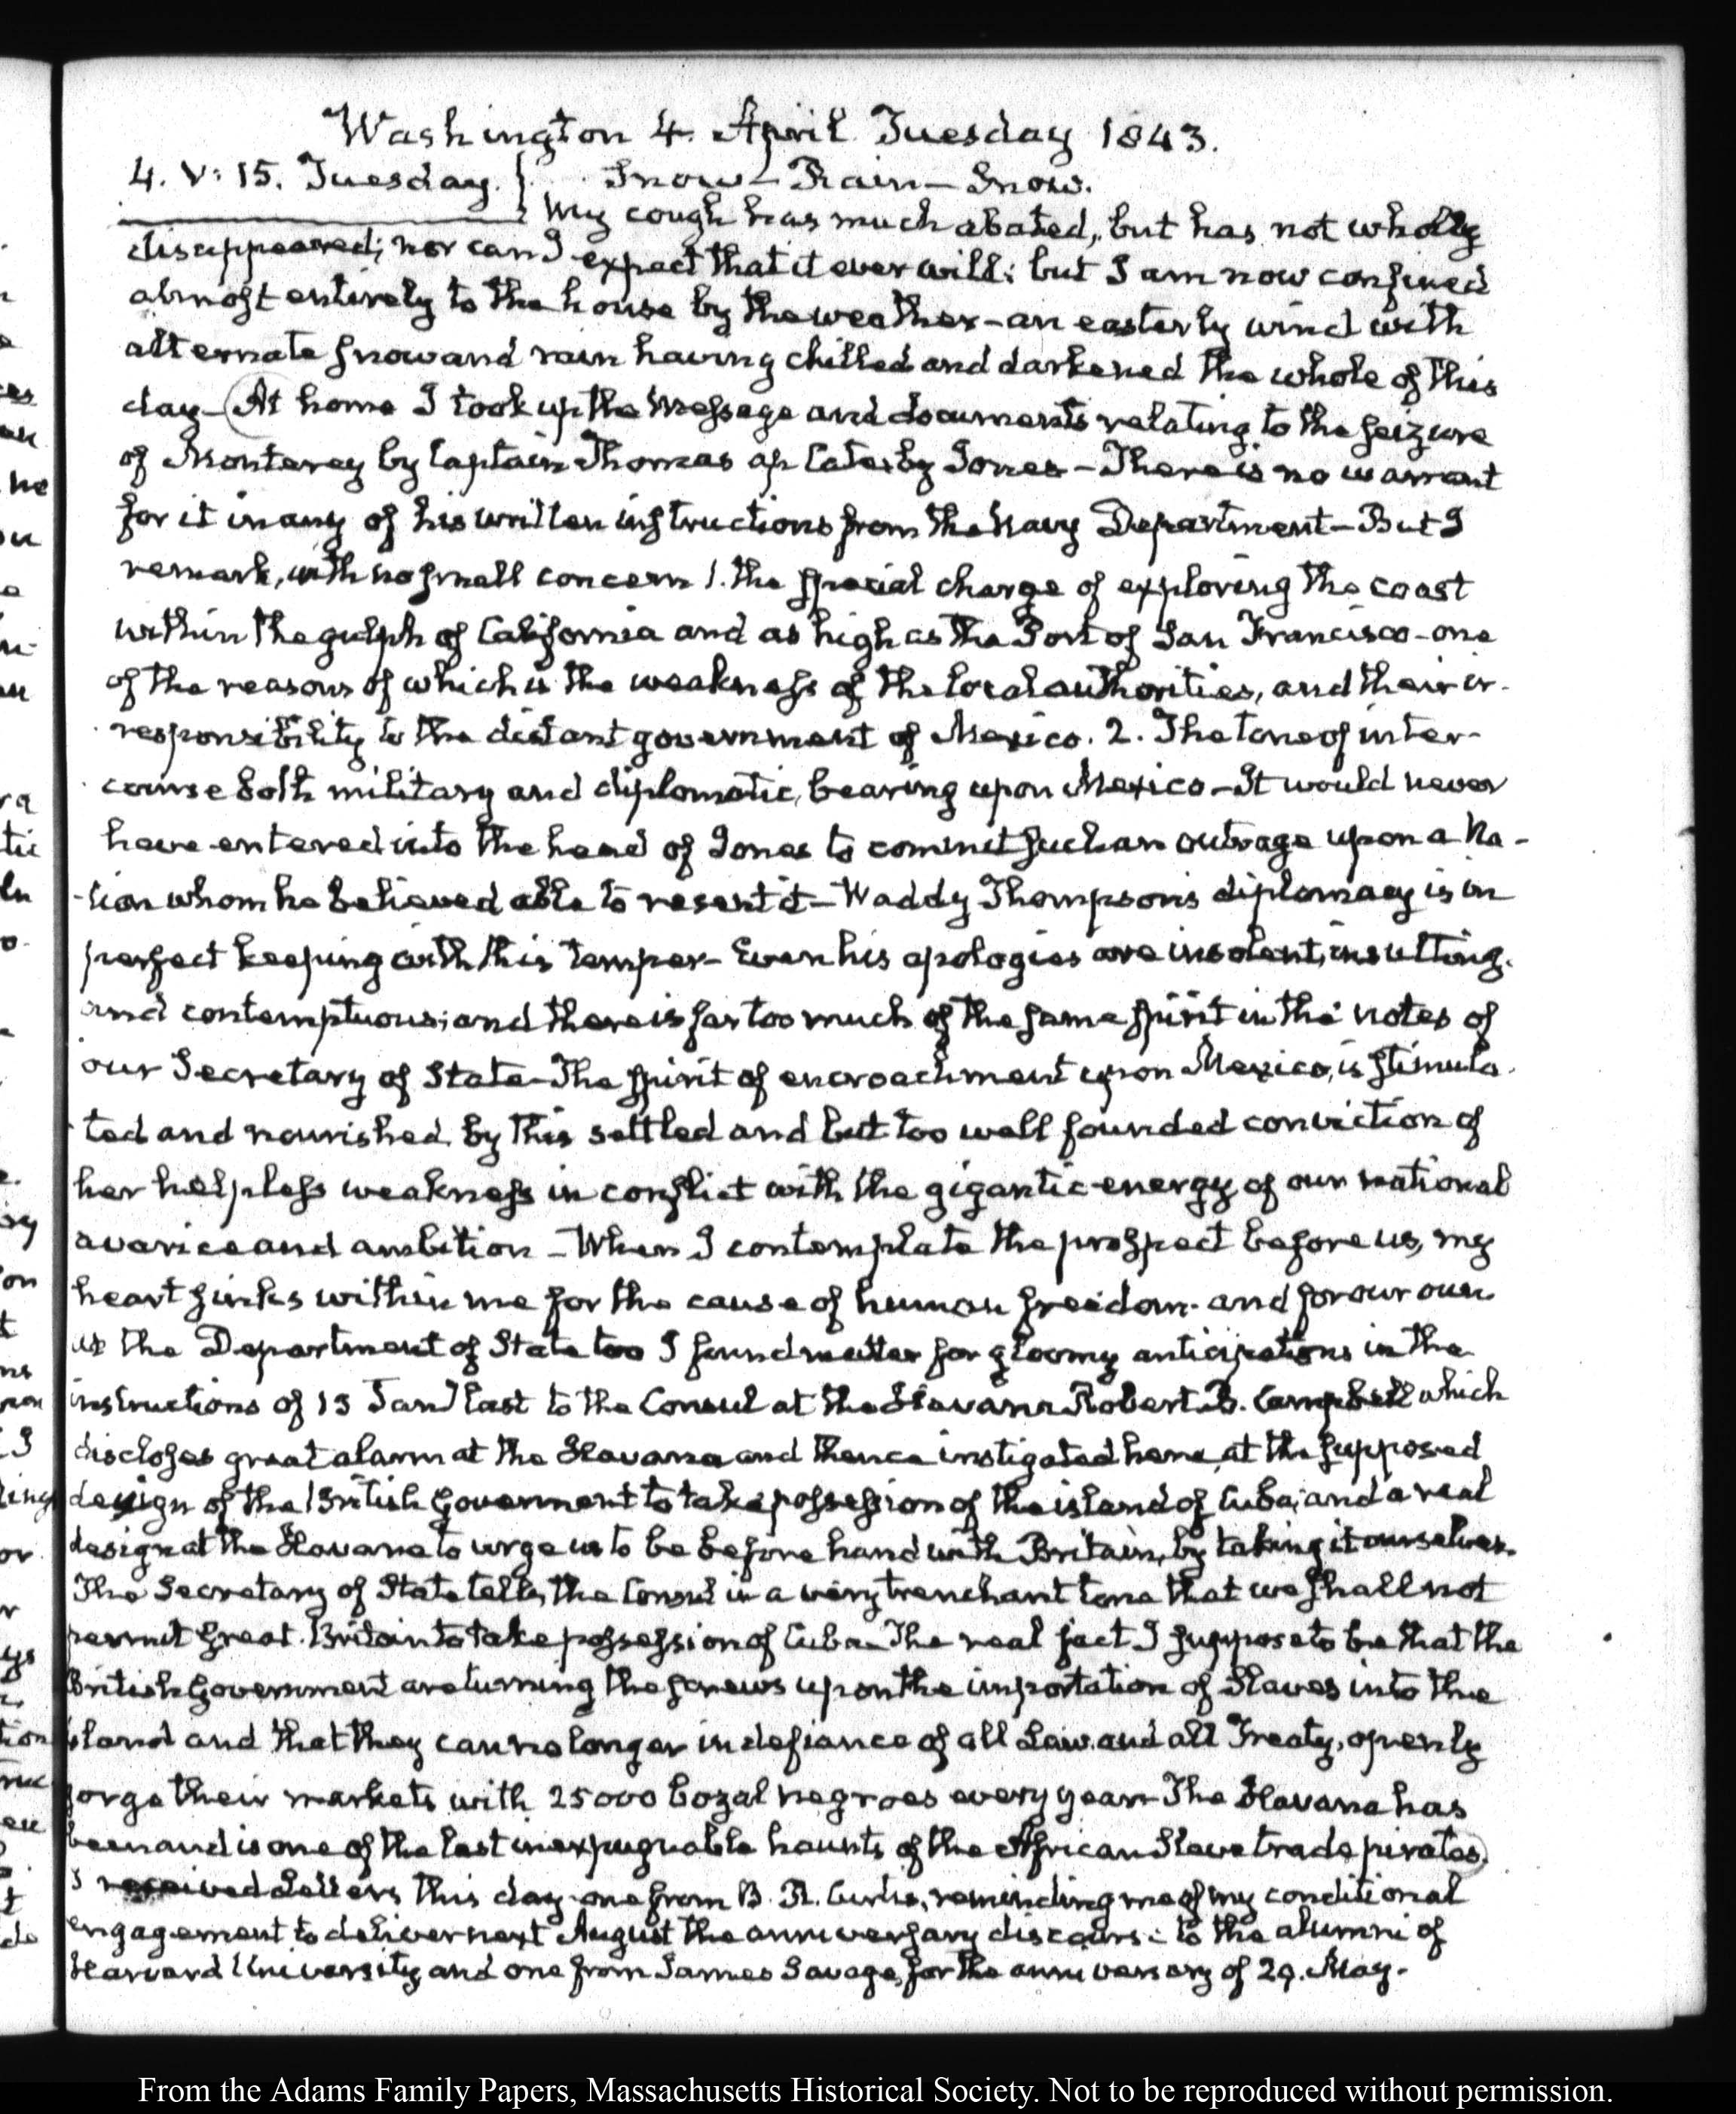 Washington 4. April. Tuesday 1843.
4. V: 15. Tuesday. } Snow – Rain – Snow.
My cough has much abated, but has not wholly
disappeared; nor can I expect that it ever will: but I am now confined
almost entirely to the house by the weather – an easterly wind with
alternate snow and rain having chilled and darkened the whole of this
day – At home I took up the Message and documents relating to the seizure
of Monterey by Captain Thomas ap Catesby Jones – There is no warrant
for it in any of his written instructions from the Navy Department – But I
remark, with no small concern 1. the special charge of exploring the coast
within the gulph of California and as high as the Port of San Francisco – one
of the reasons of which is the weakness of the local authorities, and their ir-
responsibility to the distant government of Mexico. 2. The tone of inter-
course both military and diplomatic, bearing upon Mexico – It would never
have entered into the head of Jones to commit such an outrage upon a Na-
-tion whom he believed able to resent it – Waddy Thompson's diplomacy is in
perfect keeping with this temper – Even his apologies are insolent, insulting.
and contemptuous; and there is far too much of the same spirit in the notes of
our Secretary of State – The spirit of encroachment upon Mexico, is stimula-
ted and nourished by this settled and but too well founded conviction of
her helpless weakness in conflict with the gigantic energy of our national
avarice and ambition – When I contemplate the prospect before us, my
heart sinks within me for the cause of human freedom and for our own
At the Department of State too I found matter for gloomy anticipations in the
instructions of 13 Jany last to the Consul at the Havana Robert B. Campbell which
discloses great alarm at the Havana and thence instigated here, at the supposed
design of the British Government to take possession of the island of Cuba; and a real
design at the Havana to urge us to be before hand with Britain, by taking it ourselves.
The Secretary of State tells the Consul in a very trenchant tone that we shall not
permit Great Britain to take possession of Cuba – The real fact I suppose to be that the
British Government are turning the screws upon the importation of Slaves into the
island and that they can no longer in defiance of all Law and all Treaty, openly
gorge their markets with 25000 bozal negroes every year – The Havana has
been and is one of the last inexpugnable haunts of the African Slave trade pirates.
I received Letters this day one from B. R. Curtis, reminding me of my conditional
engagement to deliver next August the anniversary discourse to the alumni of
Harvard University and one from James Savage, for the anniversary of 29. May.
From the Adams Family Papers, Massachusetts Historical Society. Not to be reproduced without permission.